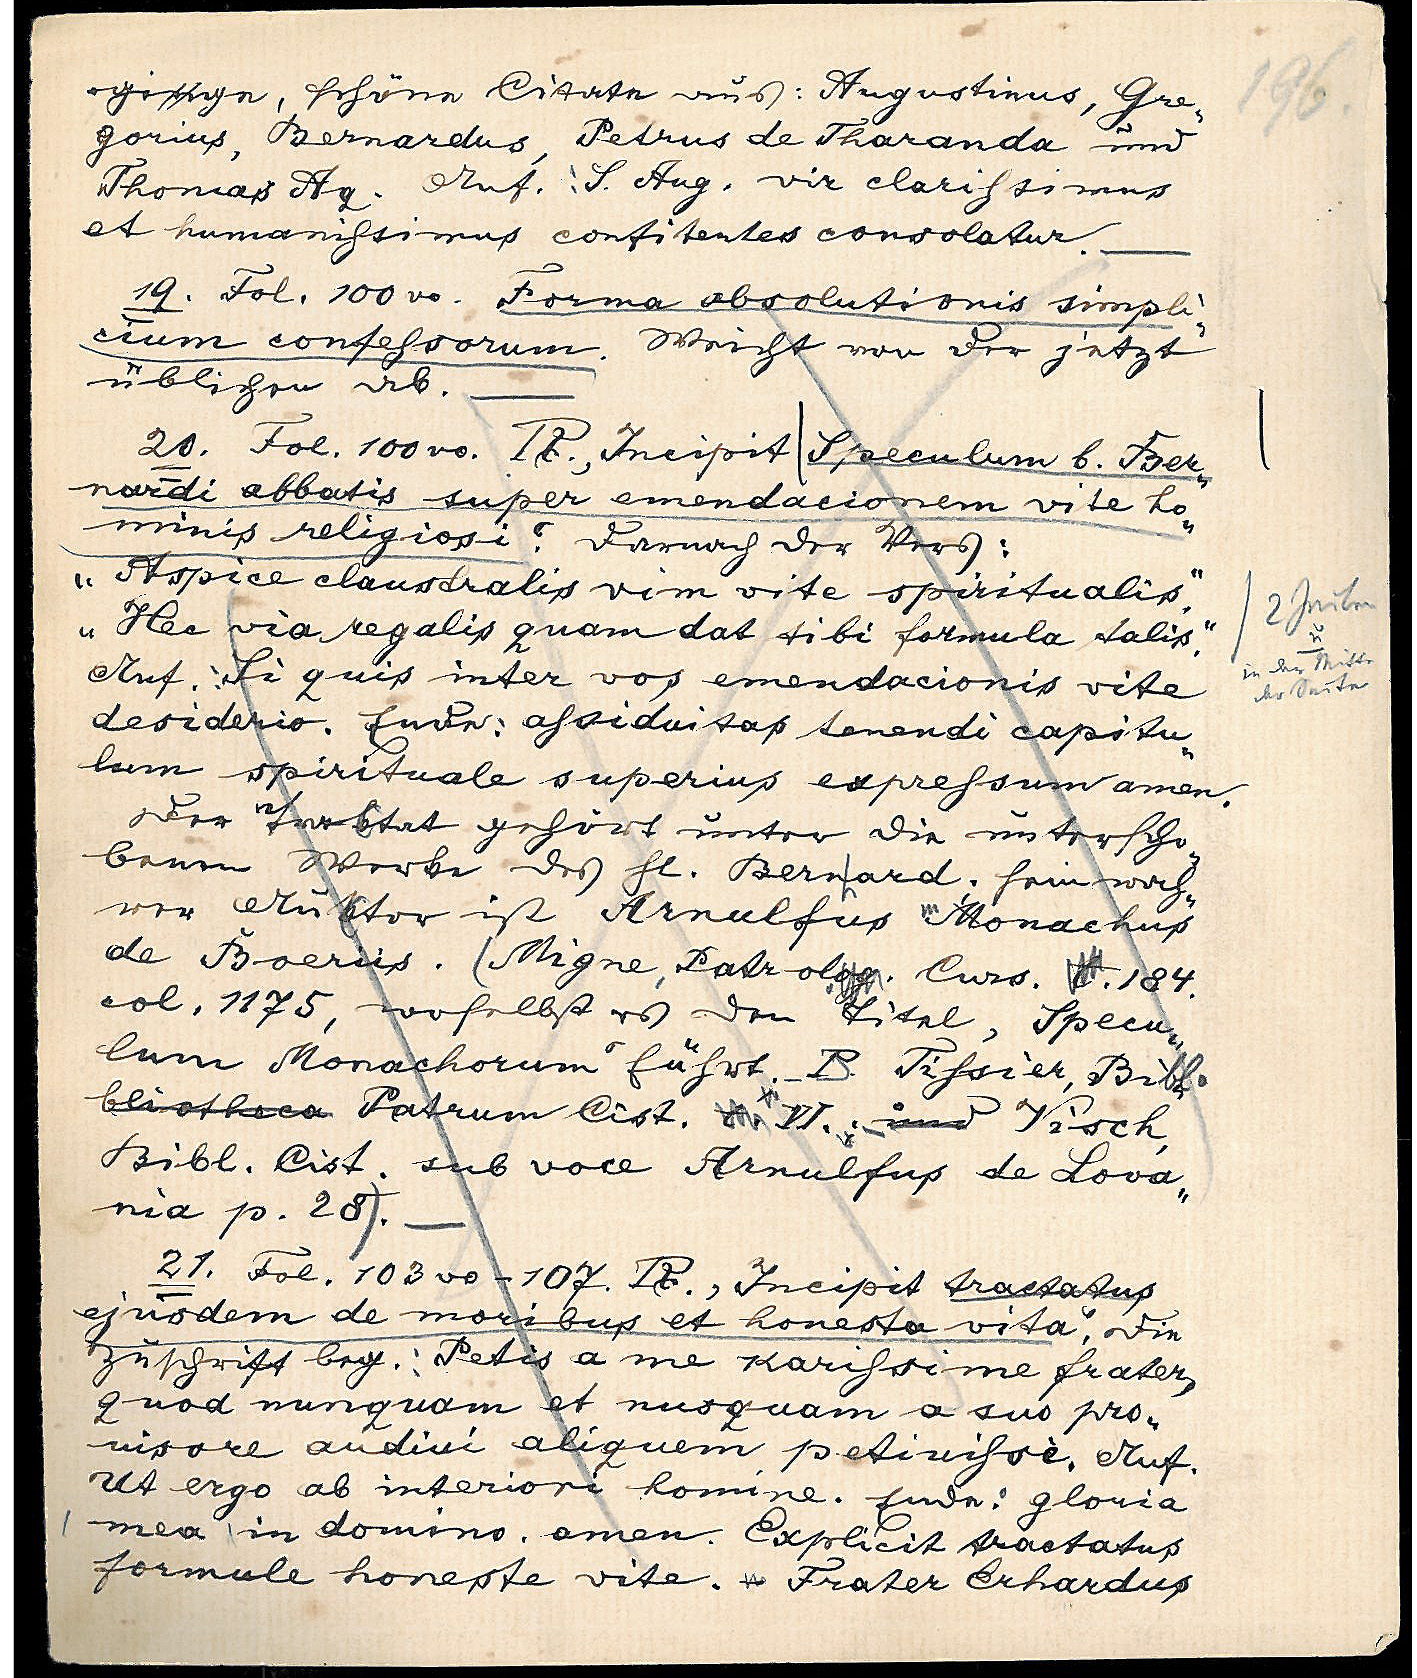 196.
schöne Citate aus: Augustinus, Gre„
gorius, Bernardus, Petrus de Tharanda und
Thomas Aq. Anf.: S. Aug. vir clarissimus
et humanissimus confitentes consolatur. —
19. Fol. 100 vo. Forma absolutionis simpli„
cium confessorum. Weicht von der jetzt
üblichen ab. —
20. Fol. 100 vo. R., Incipit Speculum b. Ber„
nardi abbatis super emendacionem vite ho„
minis religiosi“. Darnach der Vers:
„Aspice claustralis vim vite spiritualis.“
„Hec via regalis quam dat tibi formula talis.“
Anf.: Si quis inter vos emendacionis vite
desiderio. Ende: assiduitas tenendi capitu„
lum spirituale superius expressum amen.
Der Traktat gehört unter die unterscho„
benen Werke des hl. Bernhard; sein wah„
rer Auktor ist Arnulfus Monachus
de Boeriis. (Migne, Patrolog. Curs. 184.
col. 1175, woselbst es den Titel „Specu„
lum Monachorum“ führt. B. Tissier, Bibl.
bliotheca Patrum Cist. VI. und Visch,
Bibl. Cist. sub voce Arnulfus de Lova„
nia p. 28). —
21. Fol. 103 vo – 107. R., Incipit tractatus
ejusdem de moribus et honesta vita“. Die
Zuschrift beg.: Petis a me karissime frater,
quod nunquam et nusquam a suo pro„
uisore audiui aliquem petiuisse. Anf.
Ut ergo ab interiori homine. Ende: gloria
mea in domino. amen. Explicit tractatus
formule honeste vite. Frater Erhardus
2 Zeilen
in der Mitte
der Seite